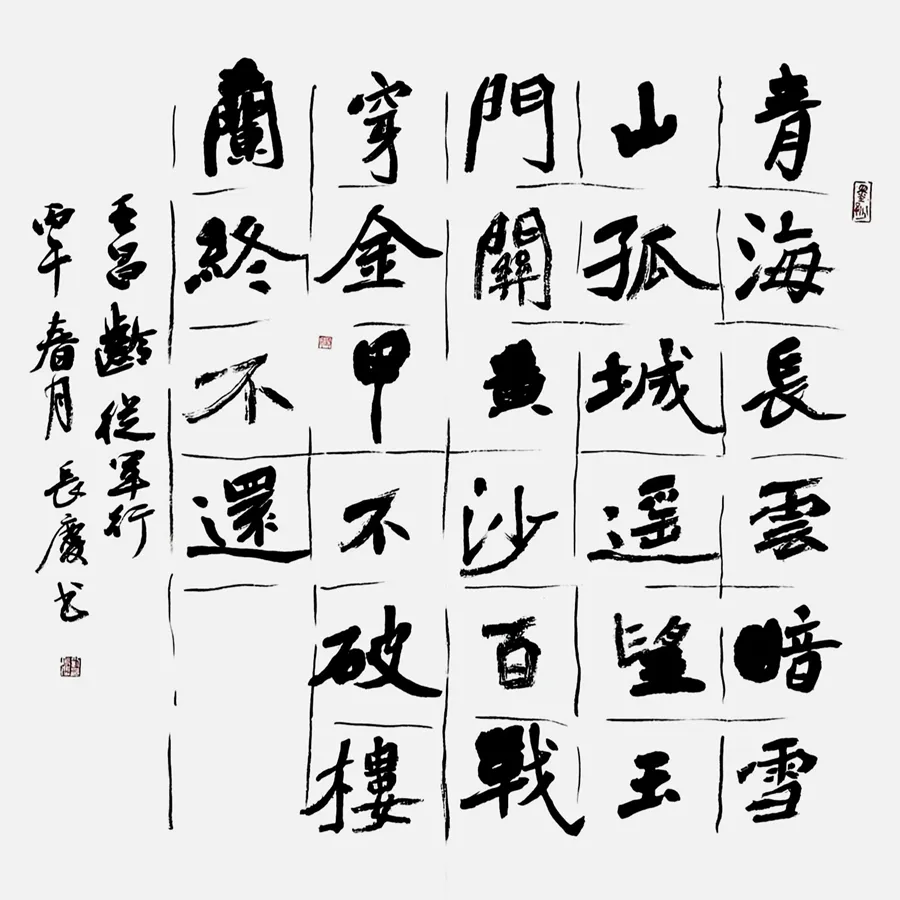 青海長雲暗雪
山孤城遥望玉
門關黄沙百戰
穿金甲不破樓
蘭終不還
王昌齡從軍行
丙午春月長慶书